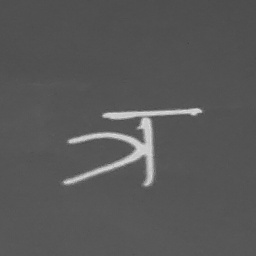 त्र